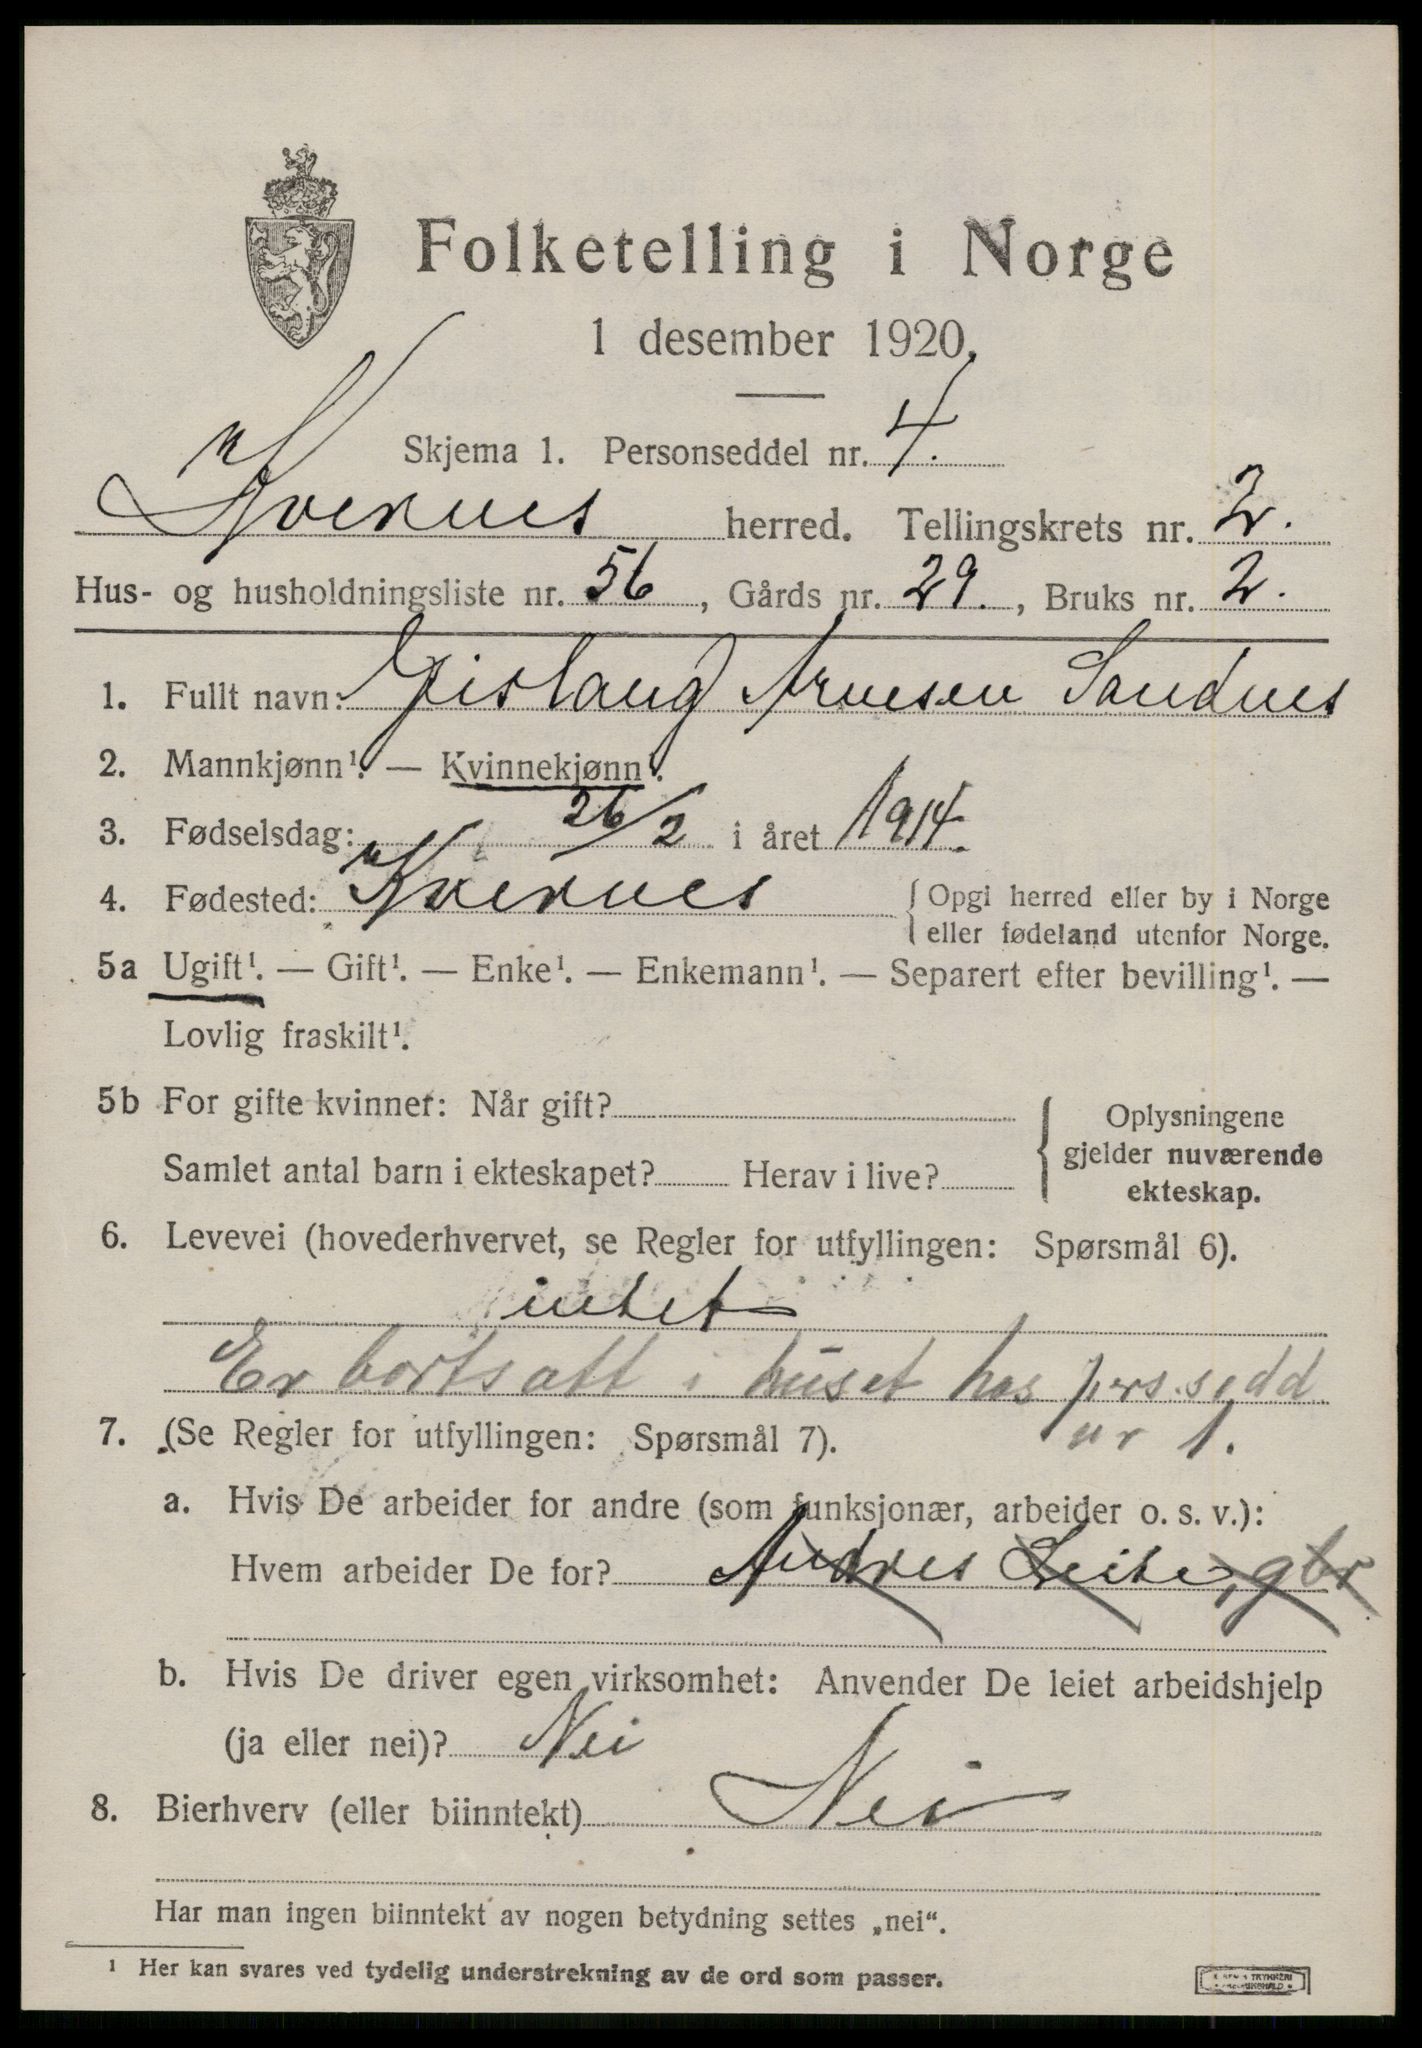 Folketelling i Norge
1 desember 1920.
Skjema 1. Personseddel nr. 4.
Kvernes herred. Tellingskrets nr. 2.
Hus- og husholdningsliste nr. 56, Gårds nr. 29., Bruks nr. 2.
1. Fullt navn: Gislaug Arnesen Sandnes
2. Mannkjønn¹. — Kvinnekjønn¹.
3. Fødselsdag: 26/2 i året 1914.
4. Fødested: Kvernes { Opgi herred eller by i Norge
eller fødeland utenfor Norge.
5a Ugift¹. — Gift¹. — Enke¹. — Enkemann¹. — Separert efter bevilling¹. —
Lovlig fraskilt¹.
5b For gifte kvinner: Når gift?
Samlet antal barn i ekteskapet? Herav i live?
Oplysningene
gjelder nuværende
ekteskap.
6. Levevei (hovederhvervet, se Regler for utfyllingen: Spørsmål 6).
intet
Er bortsatt i huset hos pers.sedd
nr 1.
7. (Se Regler for utfyllingen: Spørsmål 7).
a. Hvis De arbeider for andre (som funksjonær, arbeider o. s. v.):
Hvem arbeider De for? Andres Leite, gbr
b. Hvis De driver egen virksomhet: Anvender De leiet arbeidshjelp
(ja eller nei)? Nei
8. Bierhverv (eller biinntekt) Nei
Har man ingen biinntekt av nogen betydning settes „nei“.
¹ Her kan svares ved tydelig understrekning av de ord som passer.